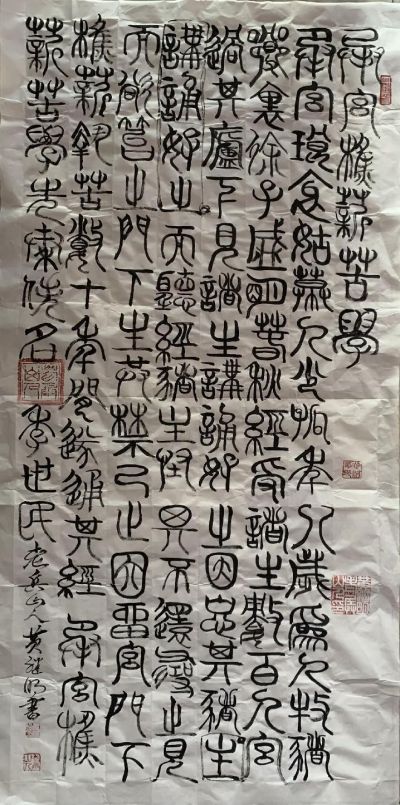 承宮樵薪苦學
承宮琅邪姑幕人少孤年八歲為人牧豬
鄉里徐子盛明春秋經授諸生數百人宮
過其廬下見諸生講誦好之因忘其豬生
講誦好之而聽經豬主怪其不還尋之見
而欲笞之門下生共禁止之因留宮門下
樵薪執苦數十年間遂通其經 承宮樵
薪苦學先 名 李世民 老兵山人黃 明書